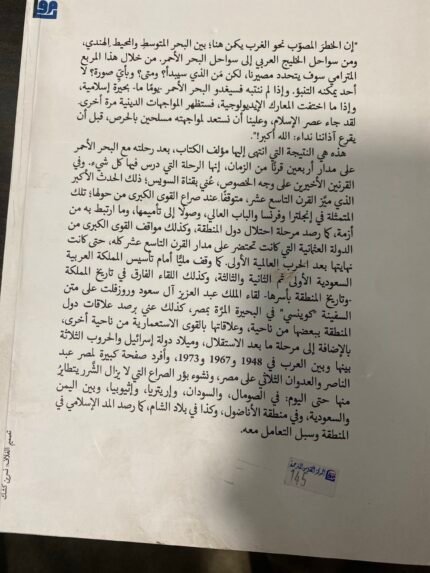 "إن الخطرَ المصوَّب نحو الغرب يكمن هنا؛ بين البحر المتوسط والمحيط الهندي،
ومن سواحل الخليج العربي إلى سواحل البحر الأحمر. من خلال هذا المربع
المترامي سوف يتحدد مصيرنا، لكن مَن الذي سيبدأ؟ ومتى؟ وبأيِّ صورة؟ لا
أحد يمكنه التنبؤ. وإذا لم ننتبه فسيغدو البحر الأحمر -يومًا ما- بحيرة إسلامية،
وإذا ما اختفت المعارك الإيديولوجية، فستظهر المواجهات الدينية مرة أخرى.
لقد جاء عصر الإسلام، وعلينا أن نستعد لمواجهته مسلحين بالحرص، قبل أن
يقرع آذاننا نداء: الله أكبر!".
هذه هي النتيجة التي انتهى إليها مؤلف الكتاب، بعد رحلته مع البحر الأحمر
على مدار أربعين قرنًا من الزمان، إنها الرحلة التي درس فيها كل شيء. وفي
القرنين الأخيرين على وجه الخصوص، عُني بقناة السويس؛ ذلك الحدث الأكبر
الذي ميَّز القرن التاسع عشر، متوقفًا عند صراع القوى الكبرى من حولها؛ تلك
المتمثلة في إنجلترا وفرنسا والباب العالي، وصولًا إلى تأميمها، وما ارتبط به من
أزمة، كما رصد مرحلة احتلال دول المنطقة، وكذلك مواقف القوى الكبرى من
الدولة العثمانية التي كانت تحتضر على مدار القرن التاسع عشر كله، حتى كانت
نهايتها بعد الحرب العالمية الأولى. كما وقف مليًّا أمام تأسيس المملكة العربية
السعودية الأولى ثم الثانية والثالثة، وكذلك اللقاء الفارق في تاريخ المملكة
-وتاريخ المنطقة بأسرها- لقاء الملك عبد العزيز آل سعود وروزفلت على متن
السفينة "كوينسي" في البحيرة المرَّة بمصر، كذلك عني برصد علاقات دول
المنطقة ببعضها من ناحية، وعلاقاتها بالقوى الاستعمارية من ناحية أخرى،
بالإضافة إلى مرحلة ما بعد الاستقلال، وميلاد دولة إسرائيل والحروب الثلاثة
بينها وبين العرب في 1948 و1967 و1973، وأفرد صفحة كبيرة لمصر عبد
الناصر والعدوان الثلاثي على مصر، ونشوء بؤر الصراع التي لا يزال الشرر يتطايرُ
منها حتى اليوم: في الصومال، والسودان، وإريتريا، وإثيوبيا، وبين اليمن
والسعودية، وفي منطقة الأناضول، وكذا في بلاد الشام، كما رصد المد الإسلامي في
المنطقة وسبل التعامل معه.
145
تصميم الغلاف: نسرين كشك